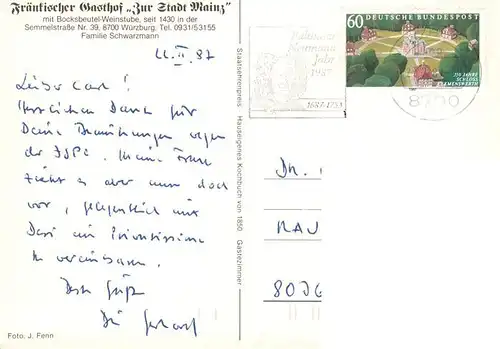 Fränkischer Gasthof „Zur Stadt Mainz"
mit Bocksbeutel-Weinstube, seit 1430 in der
Semmelstraße Nr. 39, 8700 Würzburg, Tel. 0931/53155
Familie Schwarzmann
22.II.87
Lieber Carl!
Herzlichen Dank für
Deine Bemühungen wegen
der
zieht es aber nun doch
vor, gelegentlich mit
zu vereinbaren.
Beste Grüße
Dein Gerhard
Foto: J. Fenn
Staatsehrenpreis Hauseigenes Kochbuch von 1850 Gästezimmer
Balthasar
Neumann
Jahr
1987
1687-1753
60 DEUTSCHE BUNDESPOST
250 JAHRE
SCHLOSS
CLEMENSWERTH
8700
Dr.
RAU